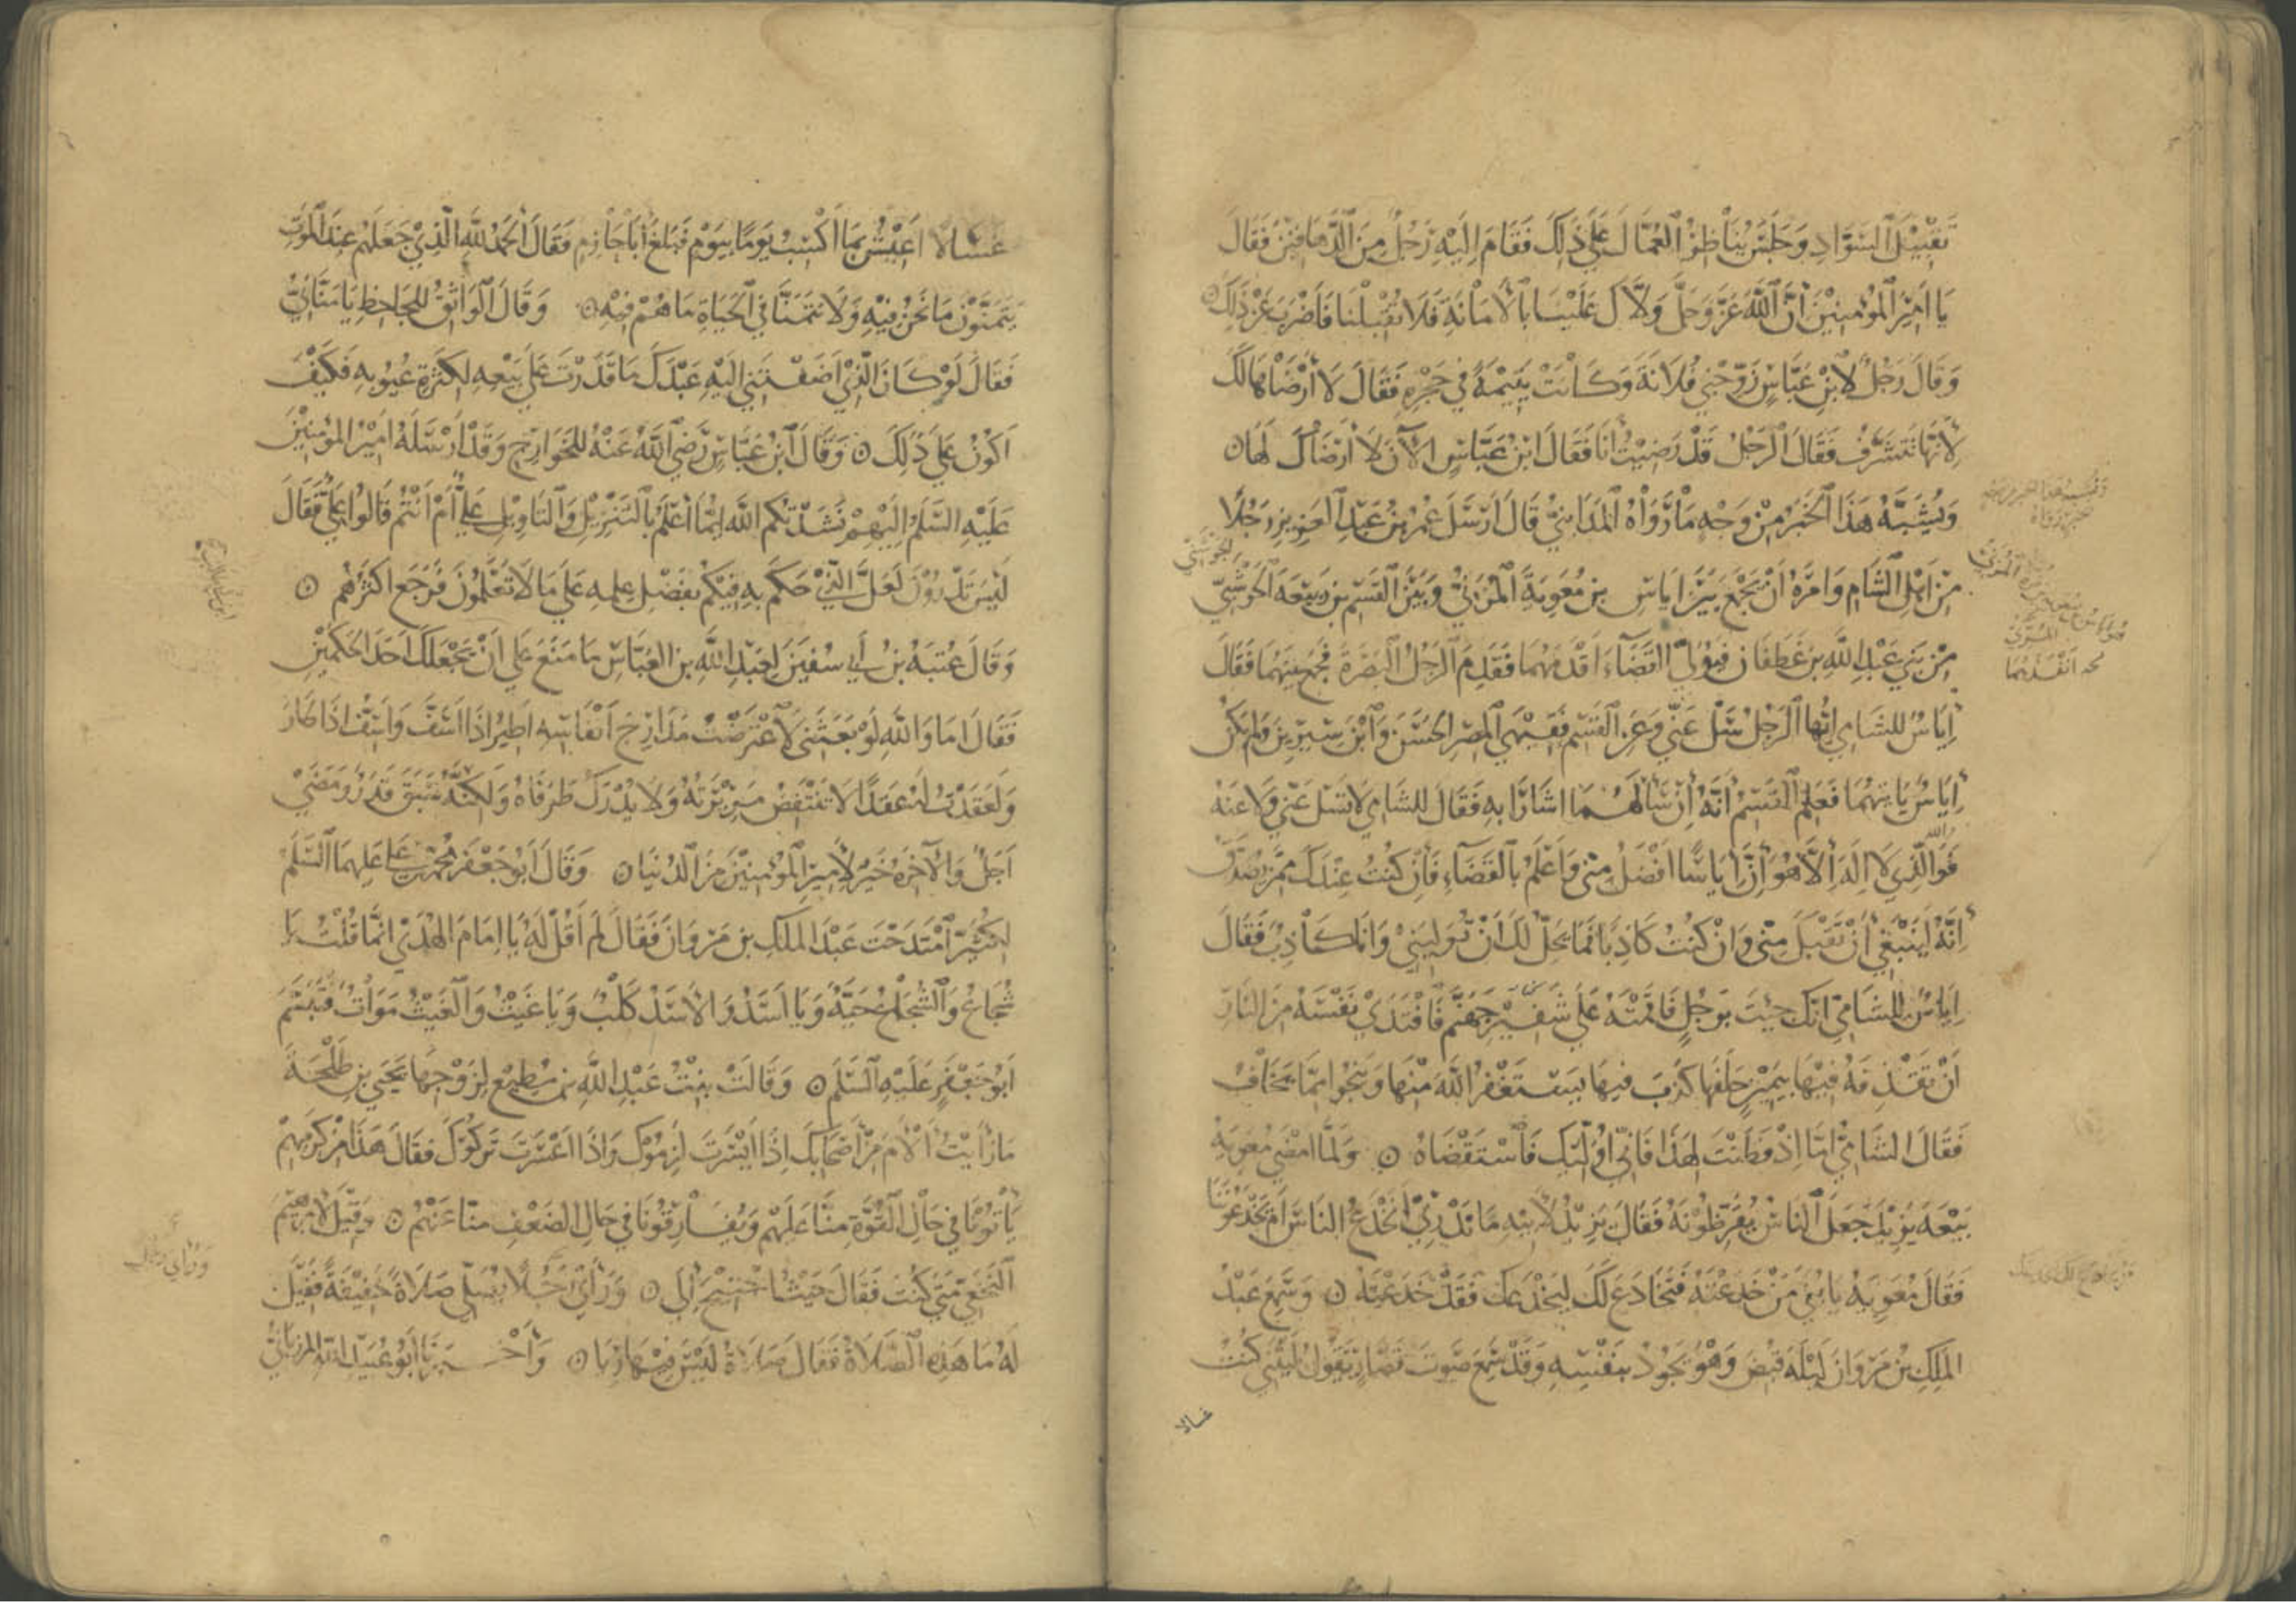 تَقْبِيْلَ السَّوَادِ وَجَلَسَ يُنَاظِرُ الْعُمَّالَ عَلَى ذَلِكَ فَقَامَ إِلَيْهِ رَجُلٌ مِنَ الدَّهَاقِيْنَ فَقَالَ
يَا أَمِيْرَ الْمُؤْمِنِيْنَ أَنَّ اللَّهَ عَزَّ وَجَلَّ وَلَّاكَ عَلَيْنَا بِالْأَمَانَةِ فَلَا تُقَبِّلْنَا فَأَضْرَبَ عَنْ ذَلِكَ ۝
وَقَالَ رَجُلٌ لِابْنِ عَبَّاسٍ زَوِّجْنِي فُلَانَةَ وَكَانَتْ يَتِيْمَةً فِي حَجْرِهِ فَقَالَ لَا أَرْضَاهَا لَكَ
لِأَنَّهَا تَتَشَرَّفُ فَقَالَ الرَّجُلُ قَدْ رَضِيْتُ أَنَا فَقَالَ ابْنُ عَبَّاسٍ الْآنَ لَا أَرْضَاكَ لَهَا ۝
وَيُشْبِهُ هَذَا الْخَبَرَ مِنْ وَجْهٍ مَا رَوَاهُ الْمَدَايِنِيُّ قَالَ أَرْسَلَ عُمَرُ بْنُ عَبْدِ الْعَزِيزِ رَجُلًا
مِنْ أَهْلِ الشَّامِ وَأَمَرَهُ أَنْ يَجْمَعَ بَيْنَ إِيَاسِ بنِ مُعَوِيَةَ الْمُزَنِيِّ وَبَيْنَ الْقَسِمِ بنِ رَبِيْعَةَ الْحَوْشِيِّ
الجوشني
مِنْ بَنِي عَبْدِ اللَّهِ بنِ غَطَفَانَ فَيُوَلِّيَ الْقَضَاءَ أَقْدَمَهُمَا فَقَدِمَ الرَّجُلُ الْبَصْرَةَ فَجَمَعَ بَيْنَهُمَا فَقَالَ
أنفذهما
إِيَاسٌ لِلشَّامِيِّ أَيُّهَا الرَّجُلُ سَلْ عَنِّي وَعَنِ الْقَسِمِ فَقِيْهَيِ الْمِصْرِ الْحَسَنَ وَابْنَ سِيْرِيْنَ وَلَمْ يَكُنْ
إِيَاسٌ يَأْتِيهِمَا فَعَلِمَ الْقَسِمُ أَنَّهُ إِنْ سَأَلَهُمَا أَشَارَا بِهِ فَقَالَ لِلشَّامِيِّ لَا تَسَلْ عَنِّي وَلَا عَنْهُ
فَوَاللَّهِ الَّذِي لَا إِلَهَ إِلَّا هُوَ إِنَّ إِيَاسًا أَفْضَلُ مِنِّي وَأَعْلَمُ بِالْقَضَاءِ فَإِنْ كُنْتُ عِنْدَكَ مِمَّنْ يُصَدَّقُ
إِنَّهُ لَيَنْبَغِي أَنْ تَقْبَلَ مِنِّي وَإِنْ كُنْتُ كَاذِبًا فَمَا يَحِلُّ لَكَ أَنْ تُوَلِّيَنِي وَأَنَا كَاذِبٌ فَقَالَ
إِيَاسٌ لِلشَّامِيِّ إِنَّكَ جِئْتَ بِرَجُلٍ فَأَقَمْتَهُ عَلَى شَفِيْرِ جَهَنَّمَ فَافْتَدَى نَفْسَهُ مِنَ النَّارِ
أَنْ تَقْذِفَهُ فِيْهَا بِيَمِيْنٍ حَلَفَهَا كَذَبَ فِيهَا يَسْتَغْفِرُ اللَّهَ مِنْهَا وَيَنْجُوا مِمَّا يَخَافُ
فَقَالَ الشَّامِيُّ أَمَا إِذْ فَطِنْتَ لِهَذَا فَإِنِّي أُوَلِّيْكَ فَاسْتَقْضَاهُ ۝ وَلَمَّا أَمْضَى مُعَوِيَةُ
بَيْعَةَ يَزِيْدَ جَعَلَ النَّاسُ يُقَرِّظُونَهُ فَقَالَ يَزِيْدُ لِأَبِيْهِ مَا نَدْرِي أَنَخْدَعُ النَّاسَ أَمْ يَخْدَعُوْنَنَا
فَقَالَ مُعَوِيَةُ يَا بُنَيَّ مَنْ خَدَعْتَهُ فَتَخَادَعَ لَكَ لِيَخْدَعَكَ فَقَدْ خَدَعْتَهُ ۝ وَسَمِعَ عَبْدُ
الْمَلِكِ بْنُ مَرْوَانَ لَيْلَةَ قُبِضَ وَهُوَ يَجُودُ بِنَفْسِهِ وَقَدْ سَمِعَ صَوْتَ قَصَّارٍ يَقُولُ لَيْتَنِي كُنْتُ
غسالا
غَسَّالًا أَعِيْشُ بِمَا أَكْتَسِبُ يَوْمًا بِيَوْمٍ فَبَلَغَ أَبَا حَازِمٍ فَقَالَ الْحَمْدُ لِلَّهِ الَّذِيْ جَعَلَهُمْ عِنْدَ الْمَوْتِ
يَتَمَنَّوْنَ مَا نَحْنُ فِيْهِ وَلَا نَتَمَنَّا فِي الْحَيَاةِ مَا هُمْ فِيْهِ ۝ وَقَالَ الْوَاثِقُ لِلْجَاحِظِ يَا مَنَّانِيُّ
فَقَالَ لَوْ كَانَ الَّذِيْ أَضَفْتَنِي إِلَيْهِ عَبْدَكَ مَا قَدَرْتَ عَلَى بَيْعِهِ لِكَثْرَةِ عُيُوبِهِ فَكَيْفَ
أَكُوْنُ عَلَى ذَلِكَ ۝ وَقَالَ ابْنُ عَبَّاسٍ رَضِيَ اللَّهُ عَنْهُ لِلْخَوَارِجِ وَقَدْ أَرْسَلَهُ أَمِيْرُ الْمُؤْمِنِيْنَ
عَلَيْهِ السَّلَمُ إِلَيْهِمْ نَشَدْتُكُمُ اللَّهَ أَيُّمَا أَعْلَمُ بِالتَّنْزِيْلِ وَالتَّأوِيْلِ عَلِيٌّ أَمْ أَنْتُمْ قَالُوا عَلِيٌّ فَقَالَ
لَيْسَ تَدْرُوْنَ لَعَلَّ الَّذِيْ حَكَمَ بِهِ فِيْكُمْ بِفَضْلِ عِلْمِهِ عَلَى مَا لَا تَعْلَمُونَ فَرَجَعَ أَكْثَرُهُمْ ۝
وَقَالَ عُتْبَةُ بنُ أَبِي سُفْيَنَ لِعَبْدِ اللَّهِ بنِ الْعَبَّاسِ مَا مَنَعَ عَلِي أَنْ يَجْعَلَكَ أَحَدَ الْحَكَمَيْنِ
فَقَالَ أَمَا وَاللَّهِ لَوْ بَعَثَنِي لَاعْتَرَضْتُ مَدَارِجَ أَنْفَاسِهِ أَطِيْرُ إِذَا أَسَفَّ وَأُسِفُّ إِذَا طَارَ
وَلَعَقَدْتُ لَهُ عَقْدًا لَا تَنْتَقِضُ مَرِيْرَتُهُ وَلَا يُدْرَكُ طَرَفَاهُ وَلَكِنَّهُ سَبَقَ قَدَرٌ وَمَضَى
أَجَلٌ وَالْآخِرَةُ خَيْرٌ لِأَمِيْرِ الْمُؤْمِنِيْنَ مِنَ الدُّنْيَا ۝ وَقَالَ أَبُو جَعْفَرٍ مُحَمَّدُ بنُ عَلِيٍّ عَلَيْهِمَا السَّلَمُ
لِكُثَيِّرٍ امْتَدَحْتَ عَبْدَ الْمَلِكِ بنَ مَرْوَانَ فَقَالَ لَمْ أَقُلْ لَهُ يَا إِمَامَ الْهُدَى إِنَّمَا قُلْتُ يَا
شُجَاعُ وَالشُّجَاعُ حَيَّةٌ وَيَا أَسَدُ وَالْأَسَدُ كَلْبٌ وَيَا غَيْثُ وَالْغَيْثُ مَوَاتٌ فَتَبَسَّمَ
أَبُو جَعْفَرٍ عَلَيْهِ السَّلَمُ ۝ وَقَالَتْ بِنْتُ عَبْدِ اللَّهِ بنِ مُطِيْعٍ لِزَوْجِهَا يَحْيَى بنِ طَلْحَةَ
مَا رَأَيْتُ أَلْأَمَ مِنْ أَصْحَابِكَ إِذَا أَيْسَرْتَ لَزِمُوْكَ وَإِذَا أَعْسَرْتَ تَرَكُوْكَ فَقَالَ هَذَا مِنْ كَرَمِهِمْ
يَأْتُونَا فِي حَالِ الْقُوَّةِ مِنَّا عَلَيْهِمْ وَيُفَارِقُونَا فِي حَالِ الضَّعْفِ مِنَّا عَنْهُمْ ۝ وَقِيْلَ لِإِبْرَهِيْمَ
النَّخَعِيِّ مَتَى كُنْتَ فَقَالَ حَيْثُ احْتِيْجَ إِلَيَّ ۝ وَرَأَى رَجُلًا يُصَلِّي صَلَاةً خَفِيْفَةً فَقِيْلَ
لَهُ مَا هَذِهِ الصَّلَاةُ فَقَالَ صَلَاةٌ لَيْسَ فِيْهَا رِيَا ۝ وَأَخْبَرَنَا أَبُو عُبَيْدِ اللَّهِ الْمَرْزُبَانِيُّ